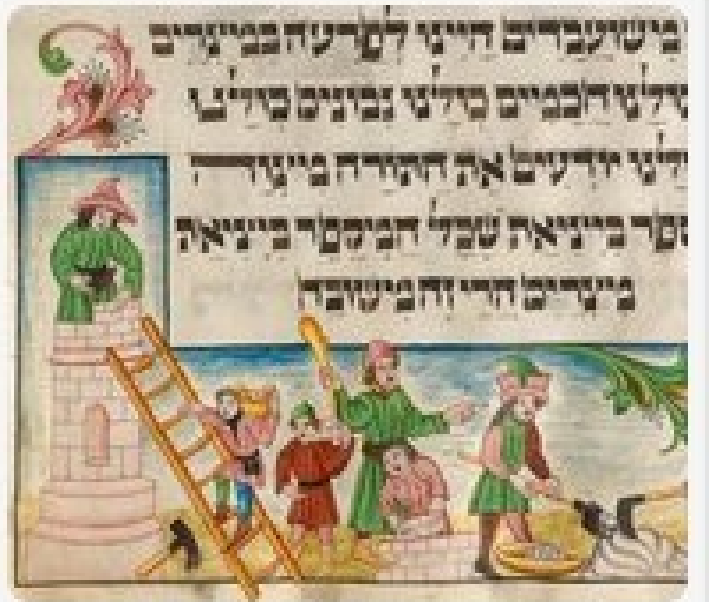 משועבדים היינו לפרעה במצרים
כולנו חכמים כולנו נבונים כולנו
יודעים את התורה מצוה
לספר ביציאה שכל המספר ביציאת
מצרים הרי זה משובח